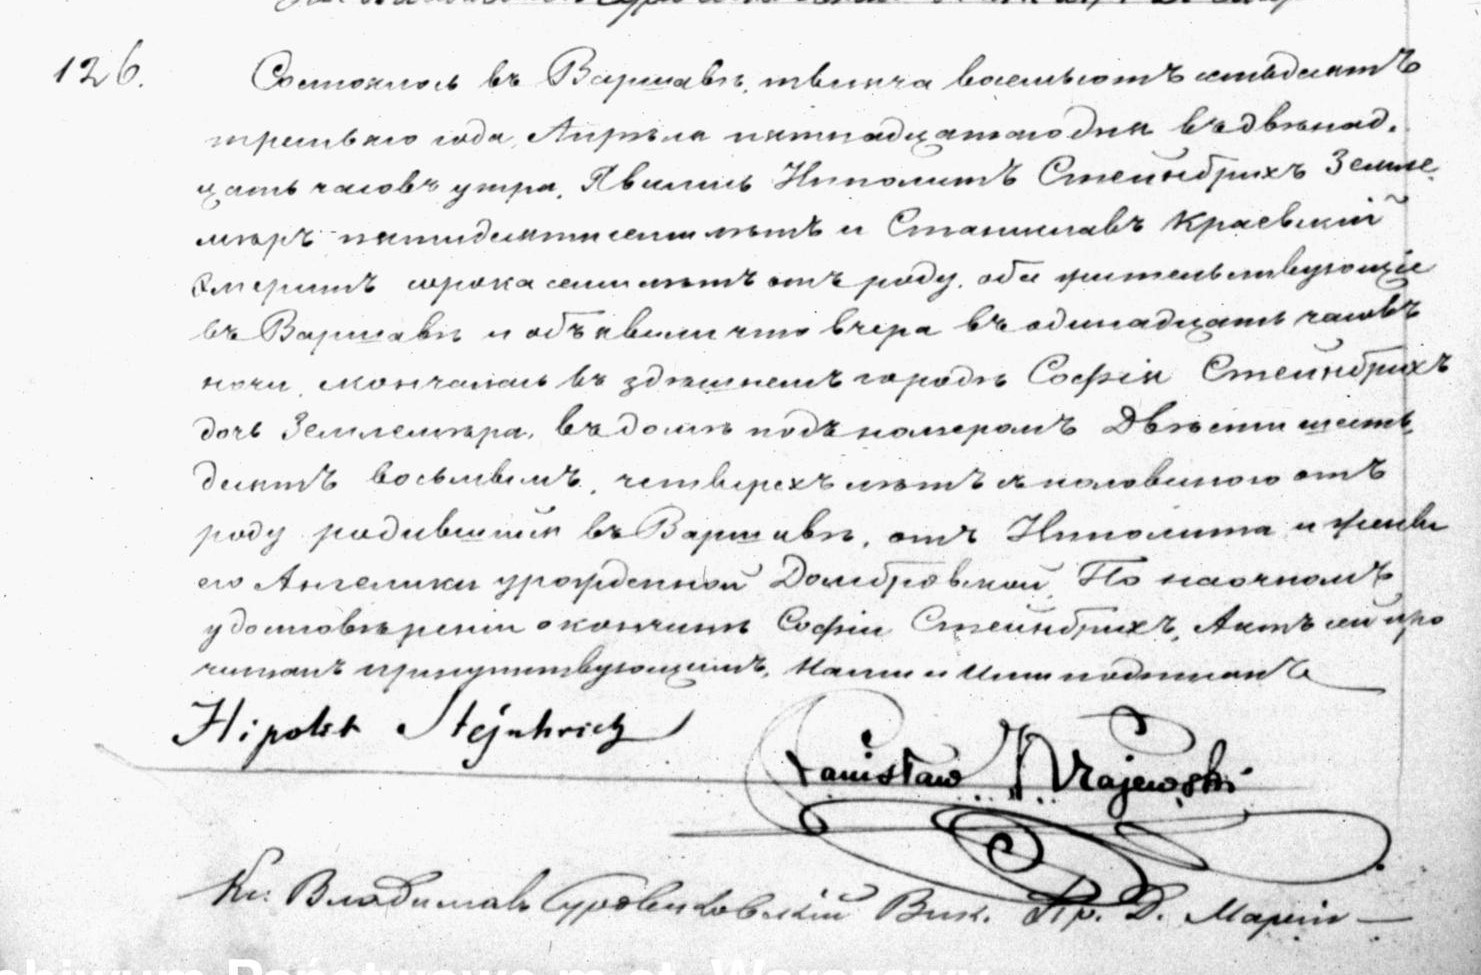 126.
Состоялось въ Варшавѣ, тысяча восемьсотъ семьдесятъ
третьяго года, Апрѣля пятнадцатаго дня въ двѣнад-
цать часовъ утра. Явились Ипполитъ Стейнбрихъ Земле-
мѣръ пятидесяти семи лѣтъ и Станиславъ Краевскій
Эмеритъ сорока семи лѣтъ отъ роду, оба жительствующіе
въ Варшавѣ и объявили что вчера въ одинадцать часовъ
ночи, скончалась въ здѣшнемъ городѣ Софія Стейнбрихъ
дочь Землемѣра, въ домѣ подъ номеромъ Двѣсти шесть-
десятъ восьмымъ, четырехъ лѣтъ съ половиною отъ
роду родившаяся въ Варшавѣ, отъ Ипполита и жены
его Ангелики урожденной Домбровской. По наочномъ
удостовѣреніи о кончинѣ Софіи Стейнбрихъ, Актъ сей про
читанъ присутствующимъ, Нами и Ими подписанъ
Hipolit Stejnbrich
Stanisław Krajewski
Кс. Владиславъ Вик. Пр. Д. Маріи